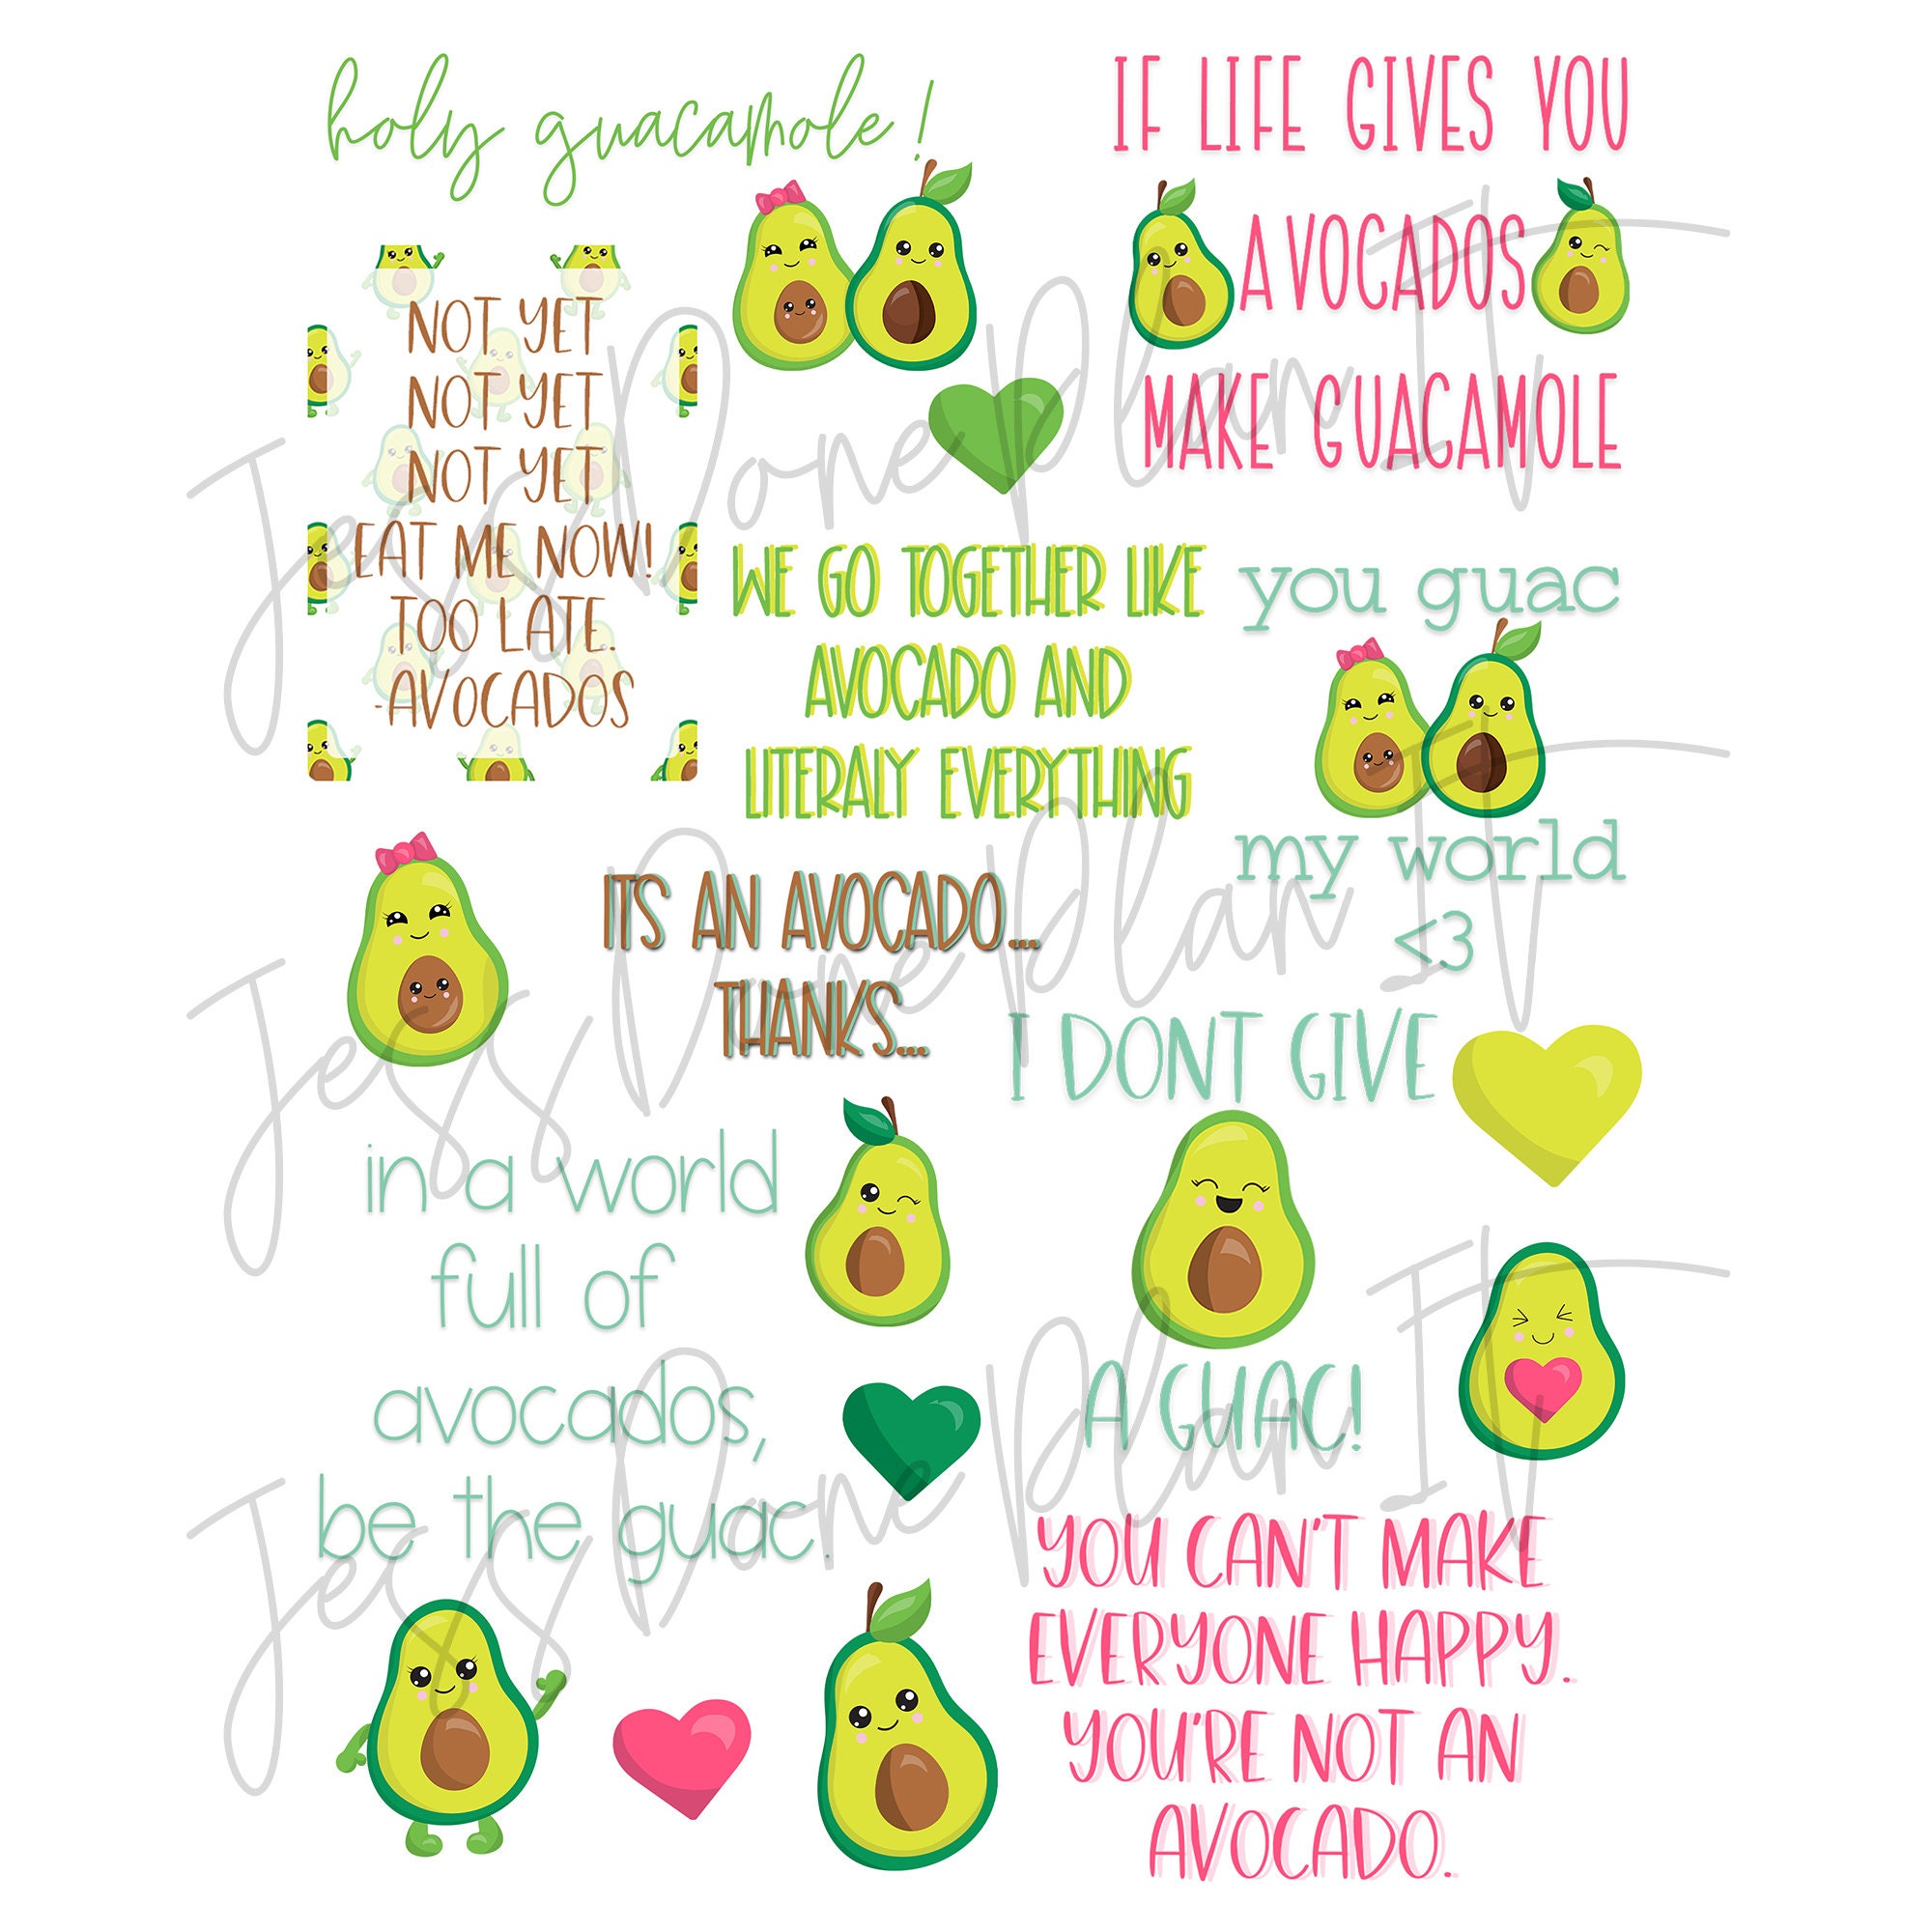 holy guacamole!
IF LIFE GIVES YOU
AVOCADOS
MAKE GUACAMOLE
NOT YET
NOT YET
NOT YET
EAT ME NOW!
TOO LATE.
-AVOCADOS
WE GO TOGETHER LIKE
AVOCADO AND
LITERALY EVERYTHING
you guac
my world
<3
ITS AN AVOCADO...
THANKS...
I DONT GIVE
A GUAC!
in a world
full of
avocados,
be the guac.
YOU CAN'T MAKE
EVERYONE HAPPY.
YOU'RE NOT AN
AVOCADO.
Jess Done Plan It
Jess Done Plan It
Jess Done Plan It